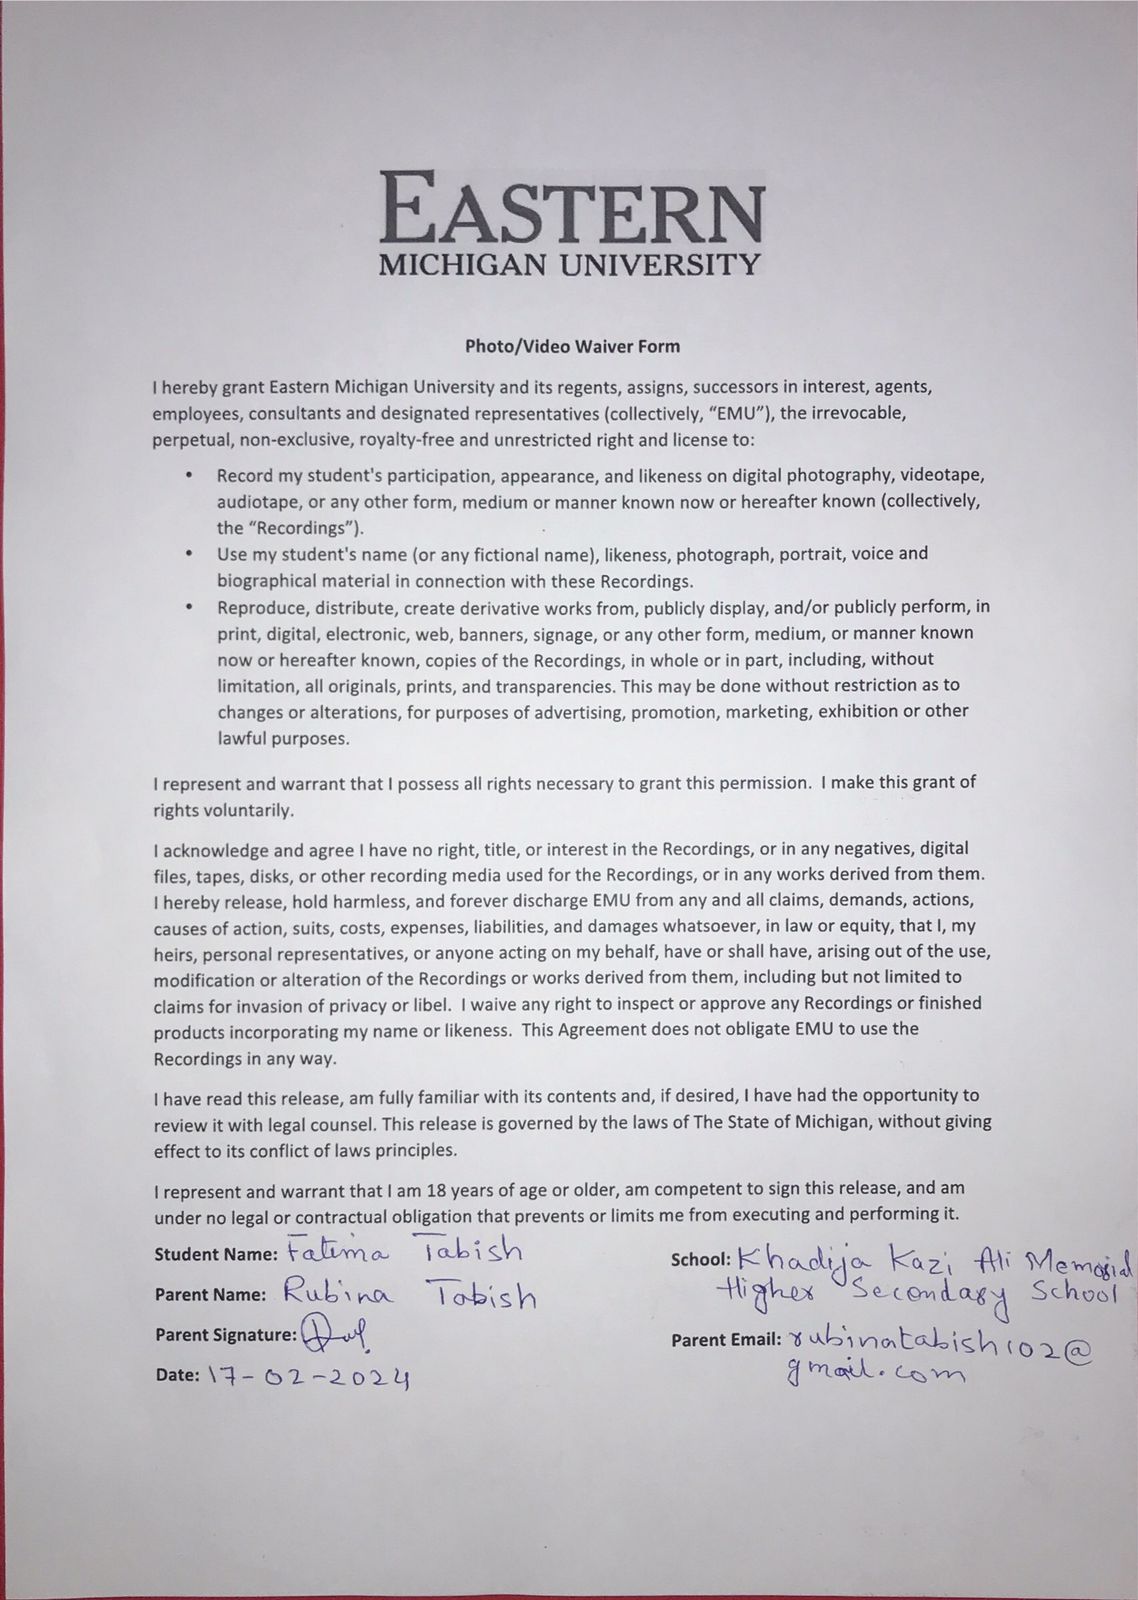 EASTERN
MICHIGAN UNIVERSITY
Photo/Video Waiver Form
I hereby grant Eastern Michigan University and its regents, assigns, successors in interest, agents,
employees, consultants and designated representatives (collectively, “EMU”), the irrevocable,
perpetual, non-exclusive, royalty-free and unrestricted right and license to:
• Record my student's participation, appearance, and likeness on digital photography, videotape,
audiotape, or any other form, medium or manner known now or hereafter known (collectively,
the “Recordings”).
• Use my student's name (or any fictional name), likeness, photograph, portrait, voice and
biographical material in connection with these Recordings.
• Reproduce, distribute, create derivative works from, publicly display, and/or publicly perform, in
print, digital, electronic, web, banners, signage, or any other form, medium, or manner known
now or hereafter known, copies of the Recordings, in whole or in part, including, without
limitation, all originals, prints, and transparencies. This may be done without restriction as to
changes or alterations, for purposes of advertising, promotion, marketing, exhibition or other
lawful purposes.
I represent and warrant that I possess all rights necessary to grant this permission. I make this grant of
rights voluntarily.
I acknowledge and agree I have no right, title, or interest in the Recordings, or in any negatives, digital
files, tapes, disks, or other recording media used for the Recordings, or in any works derived from them.
I hereby release, hold harmless, and forever discharge EMU from any and all claims, demands, actions,
causes of action, suits, costs, expenses, liabilities, and damages whatsoever, in law or equity, that I, my
heirs, personal representatives, or anyone acting on my behalf, have or shall have, arising out of the use,
modification or alteration of the Recordings or works derived from them, including but not limited to
claims for invasion of privacy or libel. I waive any right to inspect or approve any Recordings or finished
products incorporating my name or likeness. This Agreement does not obligate EMU to use the
Recordings in any way.
I have read this release, am fully familiar with its contents and, if desired, I have had the opportunity to
review it with legal counsel. This release is governed by the laws of The State of Michigan, without giving
effect to its conflict of laws principles.
I represent and warrant that I am 18 years of age or older, am competent to sign this release, and am
under no legal or contractual obligation that prevents or limits me from executing and performing it.
Student Name: Fatima Tabish
Parent Name: Rubina Tabish
Parent Signature:
Date: 17-02-2024
School: Khadija Kazi Ali Memorial
Higher Secondary School
Parent Email: rubinatabish102@
gmail.com